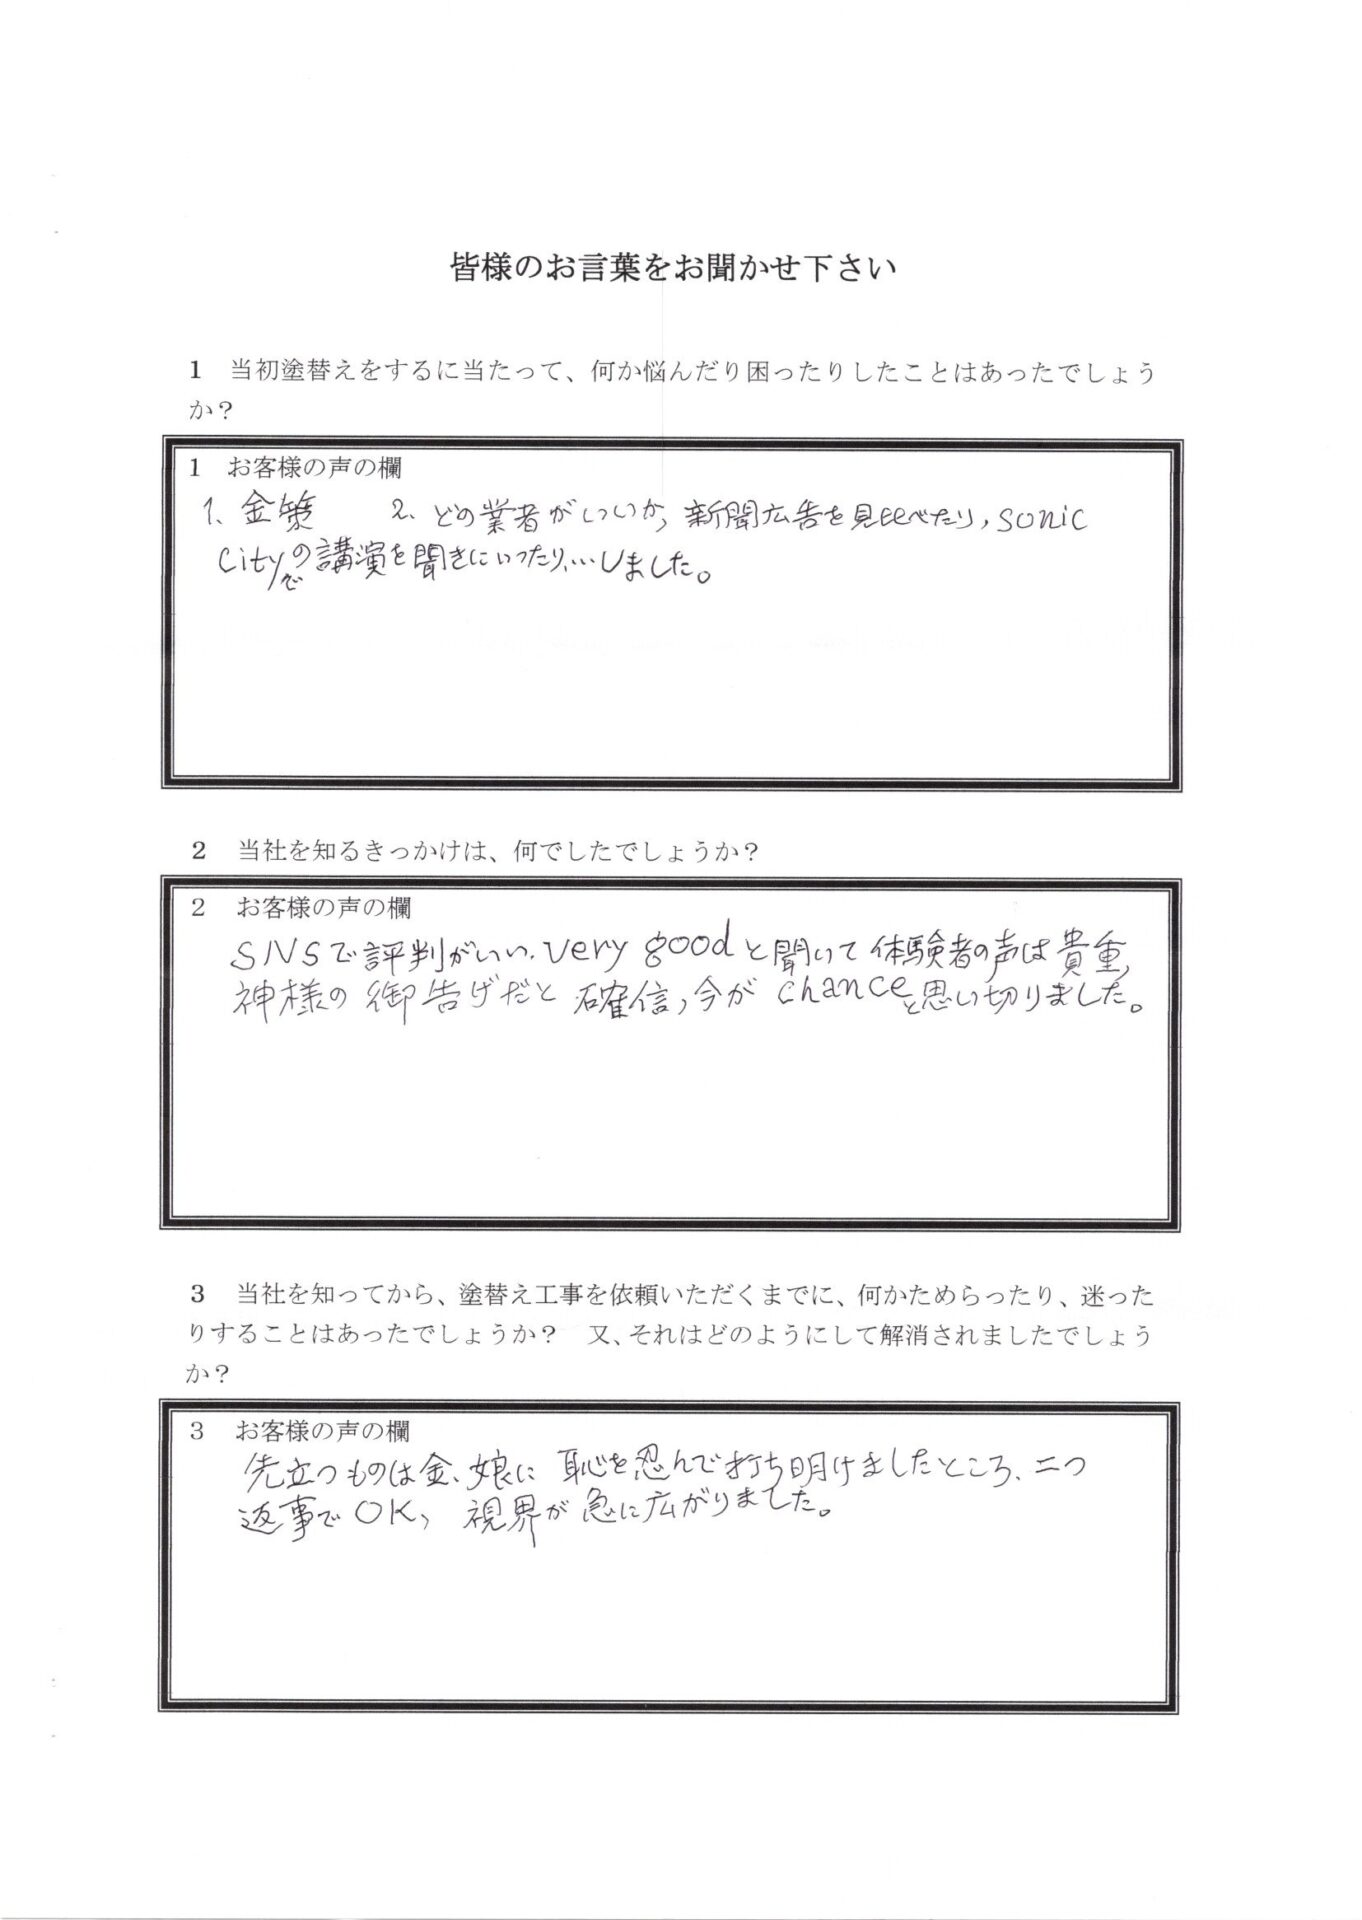 皆様のお言葉をお聞かせ下さい
1 当初塗替えをするに当たって、何か悩んだり困ったりしたことはあったでしょう
か？
1 お客様の声の欄
1、金策 2、どの業者がいいか,新聞広告を見比べたり,sonic
Cityでの講演を聞きにいったり,…しました。
2 当社を知るきっかけは、何でしたでしょうか？
2 お客様の声の欄
SNSで評判がいい.very goodと聞いて体験者の声は貴重,
神様の御告げだと確信,今がchanceと思い切りました。
3 当社を知ってから、塗替え工事を依頼いただくまでに、何かためらったり、迷った
りすることはあったでしょうか？ 又、それはどのようにして解消されましたでしょう
か？
3 お客様の声の欄
先立つものは金、娘に恥を忍んで打ち明けましたところ、二つ
返事でOK,視界が急に広がりました。